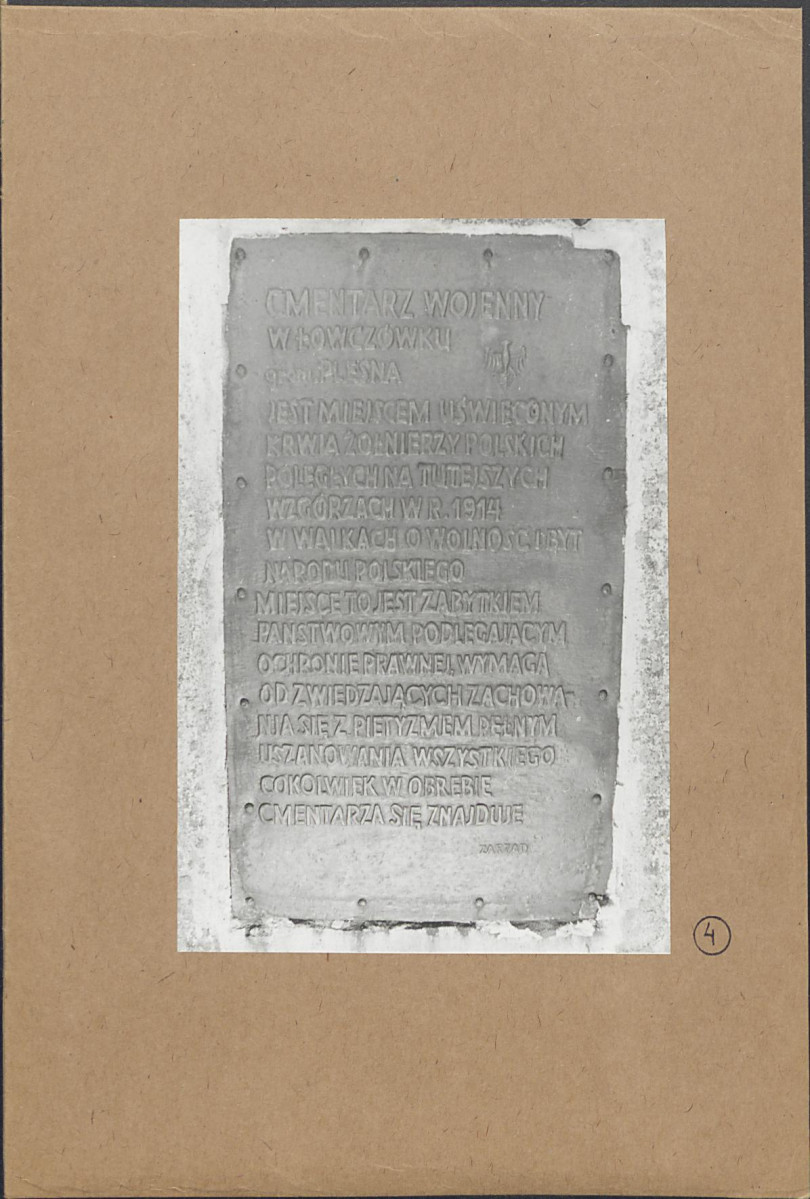 CMENTARZ WOJENNY
W ŁOWCZÓWKU
PLEŚNA
JEST MIEJSCEM UŚWIĘCONYM
KRWIĄ ŻOŁNIERZY POLSKICH
POLEGŁYCH NA TUTEJSZYCH
WZGÓRZACH W R. 1914
W WALKACH O WOLNOŚĆ I BYT
NARODU POLSKIEGO
MIEJSCE TO JEST ZABYTKIEM
PAŃSTWOWYM, PODLEGAJĄCYM
OCHRONIE PRAWNEJ, WYMAGA
OD ZWIEDZAJĄCYCH ZACHOWA-
NIA SIĘ Z PIETYZMEM PEŁNYM
USZANOWANIA WSZYSTKIEGO
COKOLWIEK W OBRĘBIE
CMENTARZA SIĘ ZNAJDUJE
ZARZĄD
4